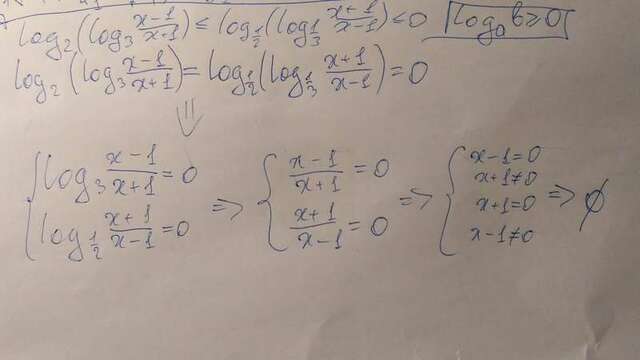 log₂(log₃ (x-1)/(x+1)) ≤ log_{1/2}(log_{1/3} (x+1)/(x-1)) < 0 log_a b ≥ 0
log₂(log₃ (x-1)/(x+1)) = log_{1/2}(log_{1/3} (x+1)/(x-1)) = 0
⇓
{ log₃ (x-1)/(x+1) = 0; log_{1/2} (x+1)/(x-1) = 0 => { (x-1)/(x+1) = 0; (x+1)/(x-1) = 0 => { x-1=0; x+1≠0; x+1=0; x-1≠0 => ∅